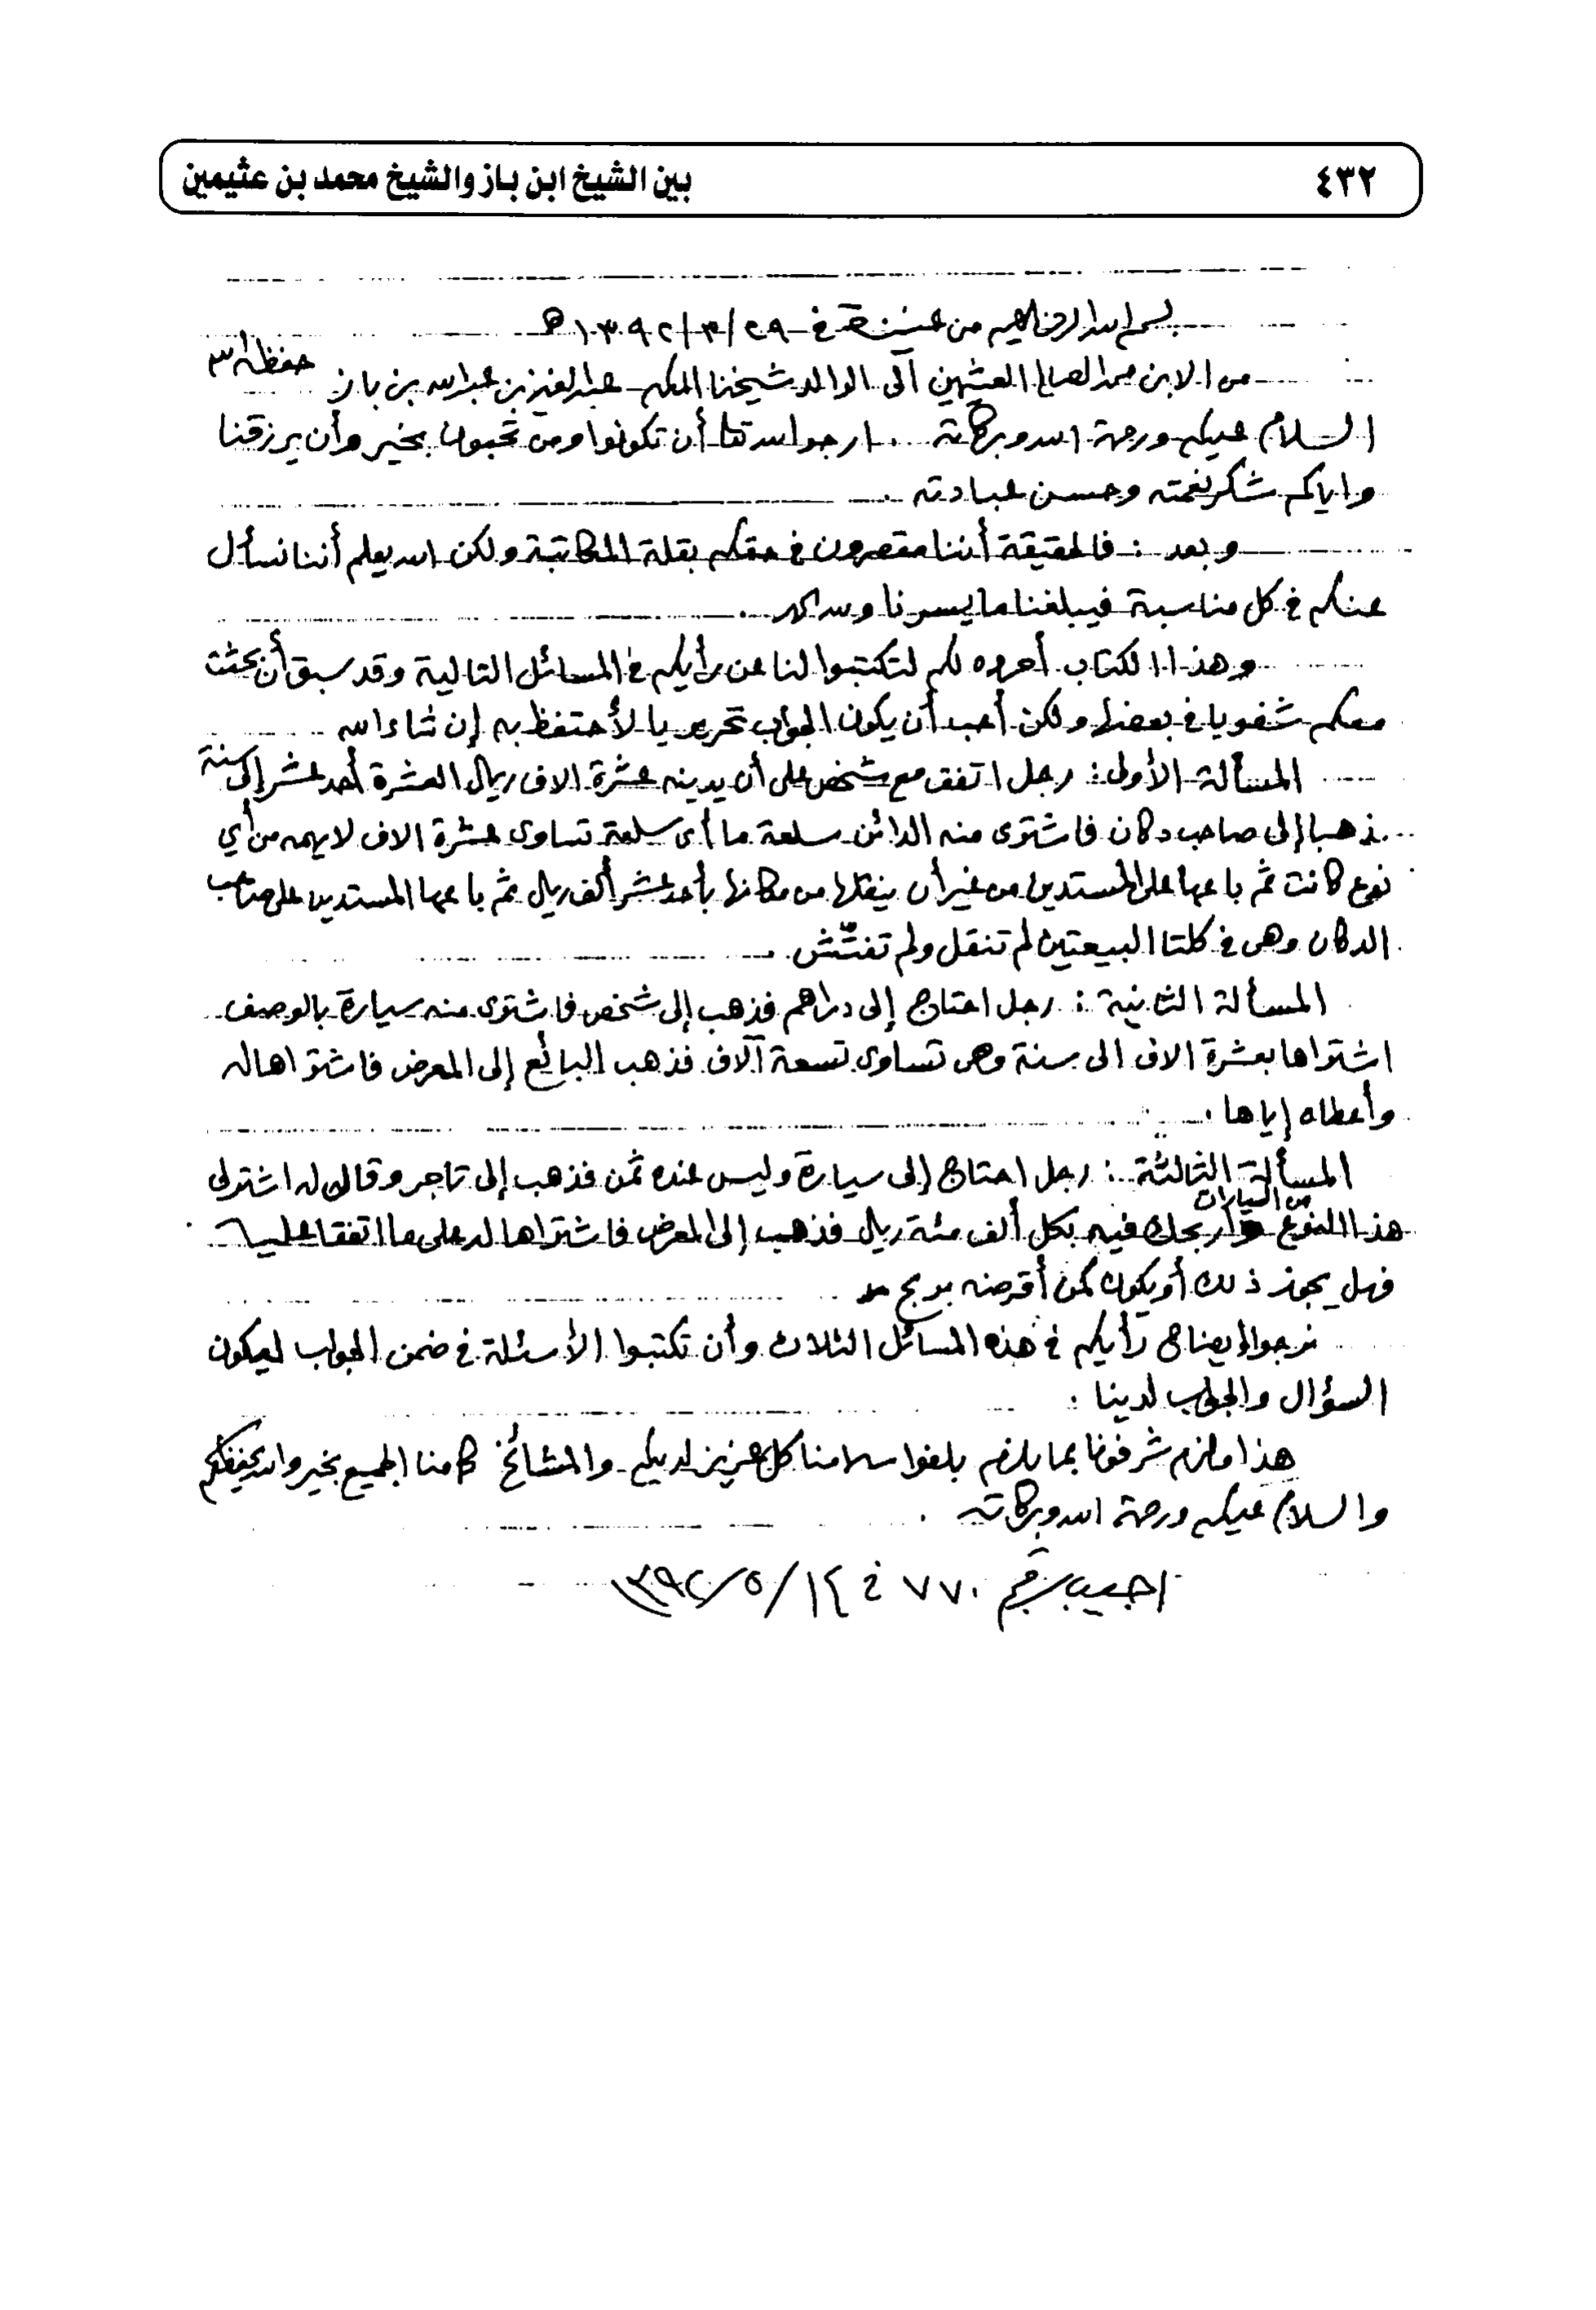 ٤٣٢ بين الشيخ ابن باز والشيخ محمد بن عثيمين
بسم الله الرحمن الرحيم من عنيزة في ٢٩/٣/١٣٩٢ هـ
من الابن محمد الصالح العثيمين الى الوالد شيخنا المكرم عبد العزيز بن عبد الله بن باز حفظه الله
السلام عليكم ورحمة الله وبركاته .. ارجو الله تعالى أن تكونوا ومن تحبون بخير وأن يرزقنا
واياكم شكر نعمته وحسن عبادته .
وبعد : فالحقيقة أننا مقصرون في حقكم بقلة المكاتبة ولكن الله يعلم أننا نسأل
عنكم في كل مناسبة فيبلغنا ما يسرنا ولله الحمد .
وهذا الكتاب أحرره لكم لتكتبوا لنا عن رأيكم في المسائل التالية وقد سبق أن بحثت
معكم شفويا في بعضها ولكن أحب أن يكون الجواب تحريريا لأحتفظ به إن شاء الله
المسألة الأولى : رجل اتفق مع شخص على أن يدينه عشرة الاف ريال العشرة أحد عشر إلى سنة
فذهبا إلى صاحب دكان فاشترى منه الدائن سلعة ما أى سلعة تساوى عشرة الاف لا يهمه من أي
نوع كانت ثم باعها على المستدين من غير أن ينقلها من مكانها بأحد عشر ألف ريال ثم باعها المستدين على صاحب
الدكان وهى في كلتا البيعتين لم تنقل ولم تفتّش .
المسألة الثانية : رجل احتاج إلى دراهم فذهب إلى شخص فاشترى منه سيارة بالوصف
اشتراها بعشرة الاف الى سنة وهى تساوى تسعة آلاف فذهب البائع إلى المعرض فاشتراها له
وأعطاه إياها .
المسألة الثالثة : رجل احتاج إلى سيارة وليس عنده ثمن فذهب إلى تاجر وقال له اشتر لي
هذا النوع من السيارات وأربحك فيه بكل ألف مئة ريال فذهب إلى المعرض فاشتراها له على ما اتفقا عليه .
فهل يجوز ذلك أو يكون كمن أقرضه بربح
نرجو إيضاح رأيكم في هذه المسائل الثلاث وأن تكتبوا الأسئلة في ضمن الجواب ليكون
السؤال والجواب لدينا .
هذا ما لزم شرفونا بما يلزم بلغوا سلامنا كل عزيز لديكم والمشائخ كما منا الجميع بخير والله يحفظكم
والسلام عليكم ورحمة الله وبركاته .
اجيب برقم ٧٧٠ في ١٤/٥/١٣٩٢